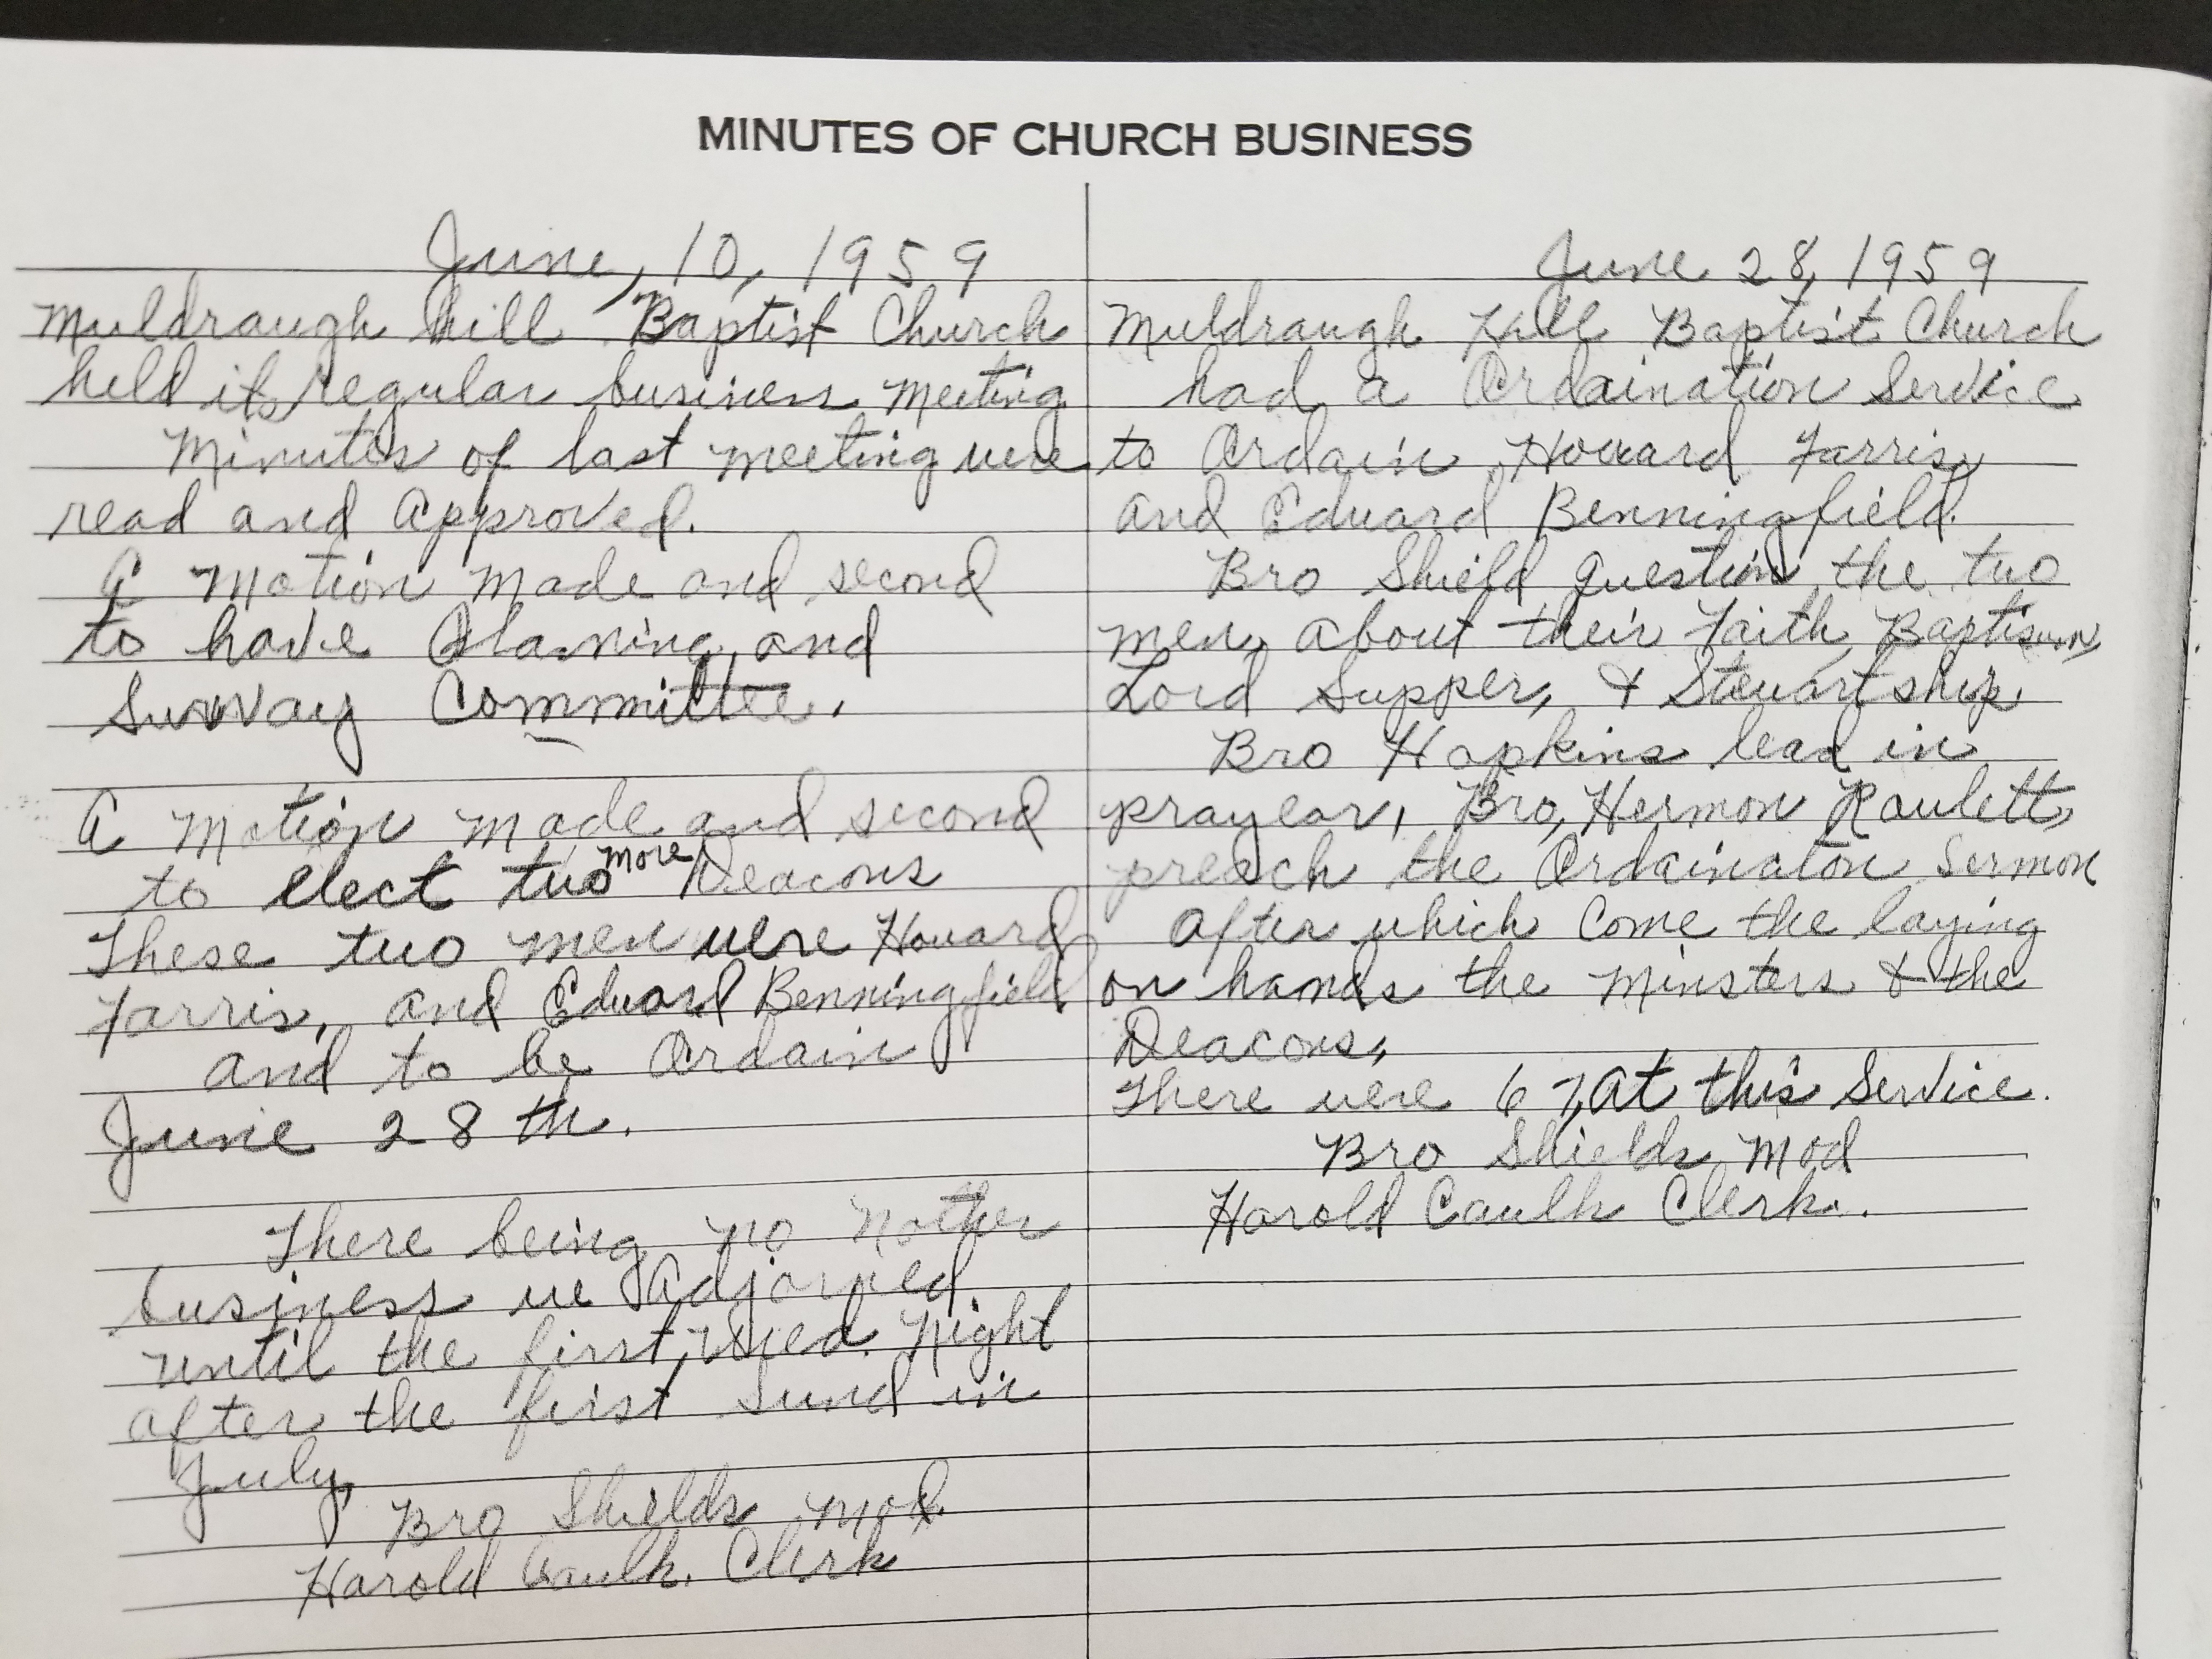 MINUTES OF CHURCH BUSINESS
June, 10, 1959
Muldraugh hill Baptist Church
held its regular business meeting
Minutes of last meeting were
read and approved.
a motion made and second
to have Planing and
Survay Committee.
a motion made and second
to elect two more Deacons
These two men were Howard
Farris, and Edward Benningfield
and to be Ordain
June 28 th.
There being no nother
business we adjorned
until the first Wed. night
after the first Sund in
July,
Bro Shields Mod.
Harold Caulk. Clerk
June 28, 1959
Muldraugh Hill Baptist Church
had a Ordaination Service
to Ordain Howard Farris,
and Edward Benningfield.
Bro Shield question the two
men about their Faith, Baptism,
Lord Supper, & Stewartship.
Bro Hopkins lead in
prayear, Bro, Hermon Raulett,
preach the Ordainaton Sermon
After which Come the laying
on hands the Minsters & the
Deacons,
There were 67, at this Service.
Bro Shields Mod
Harold Caulk Clerk.